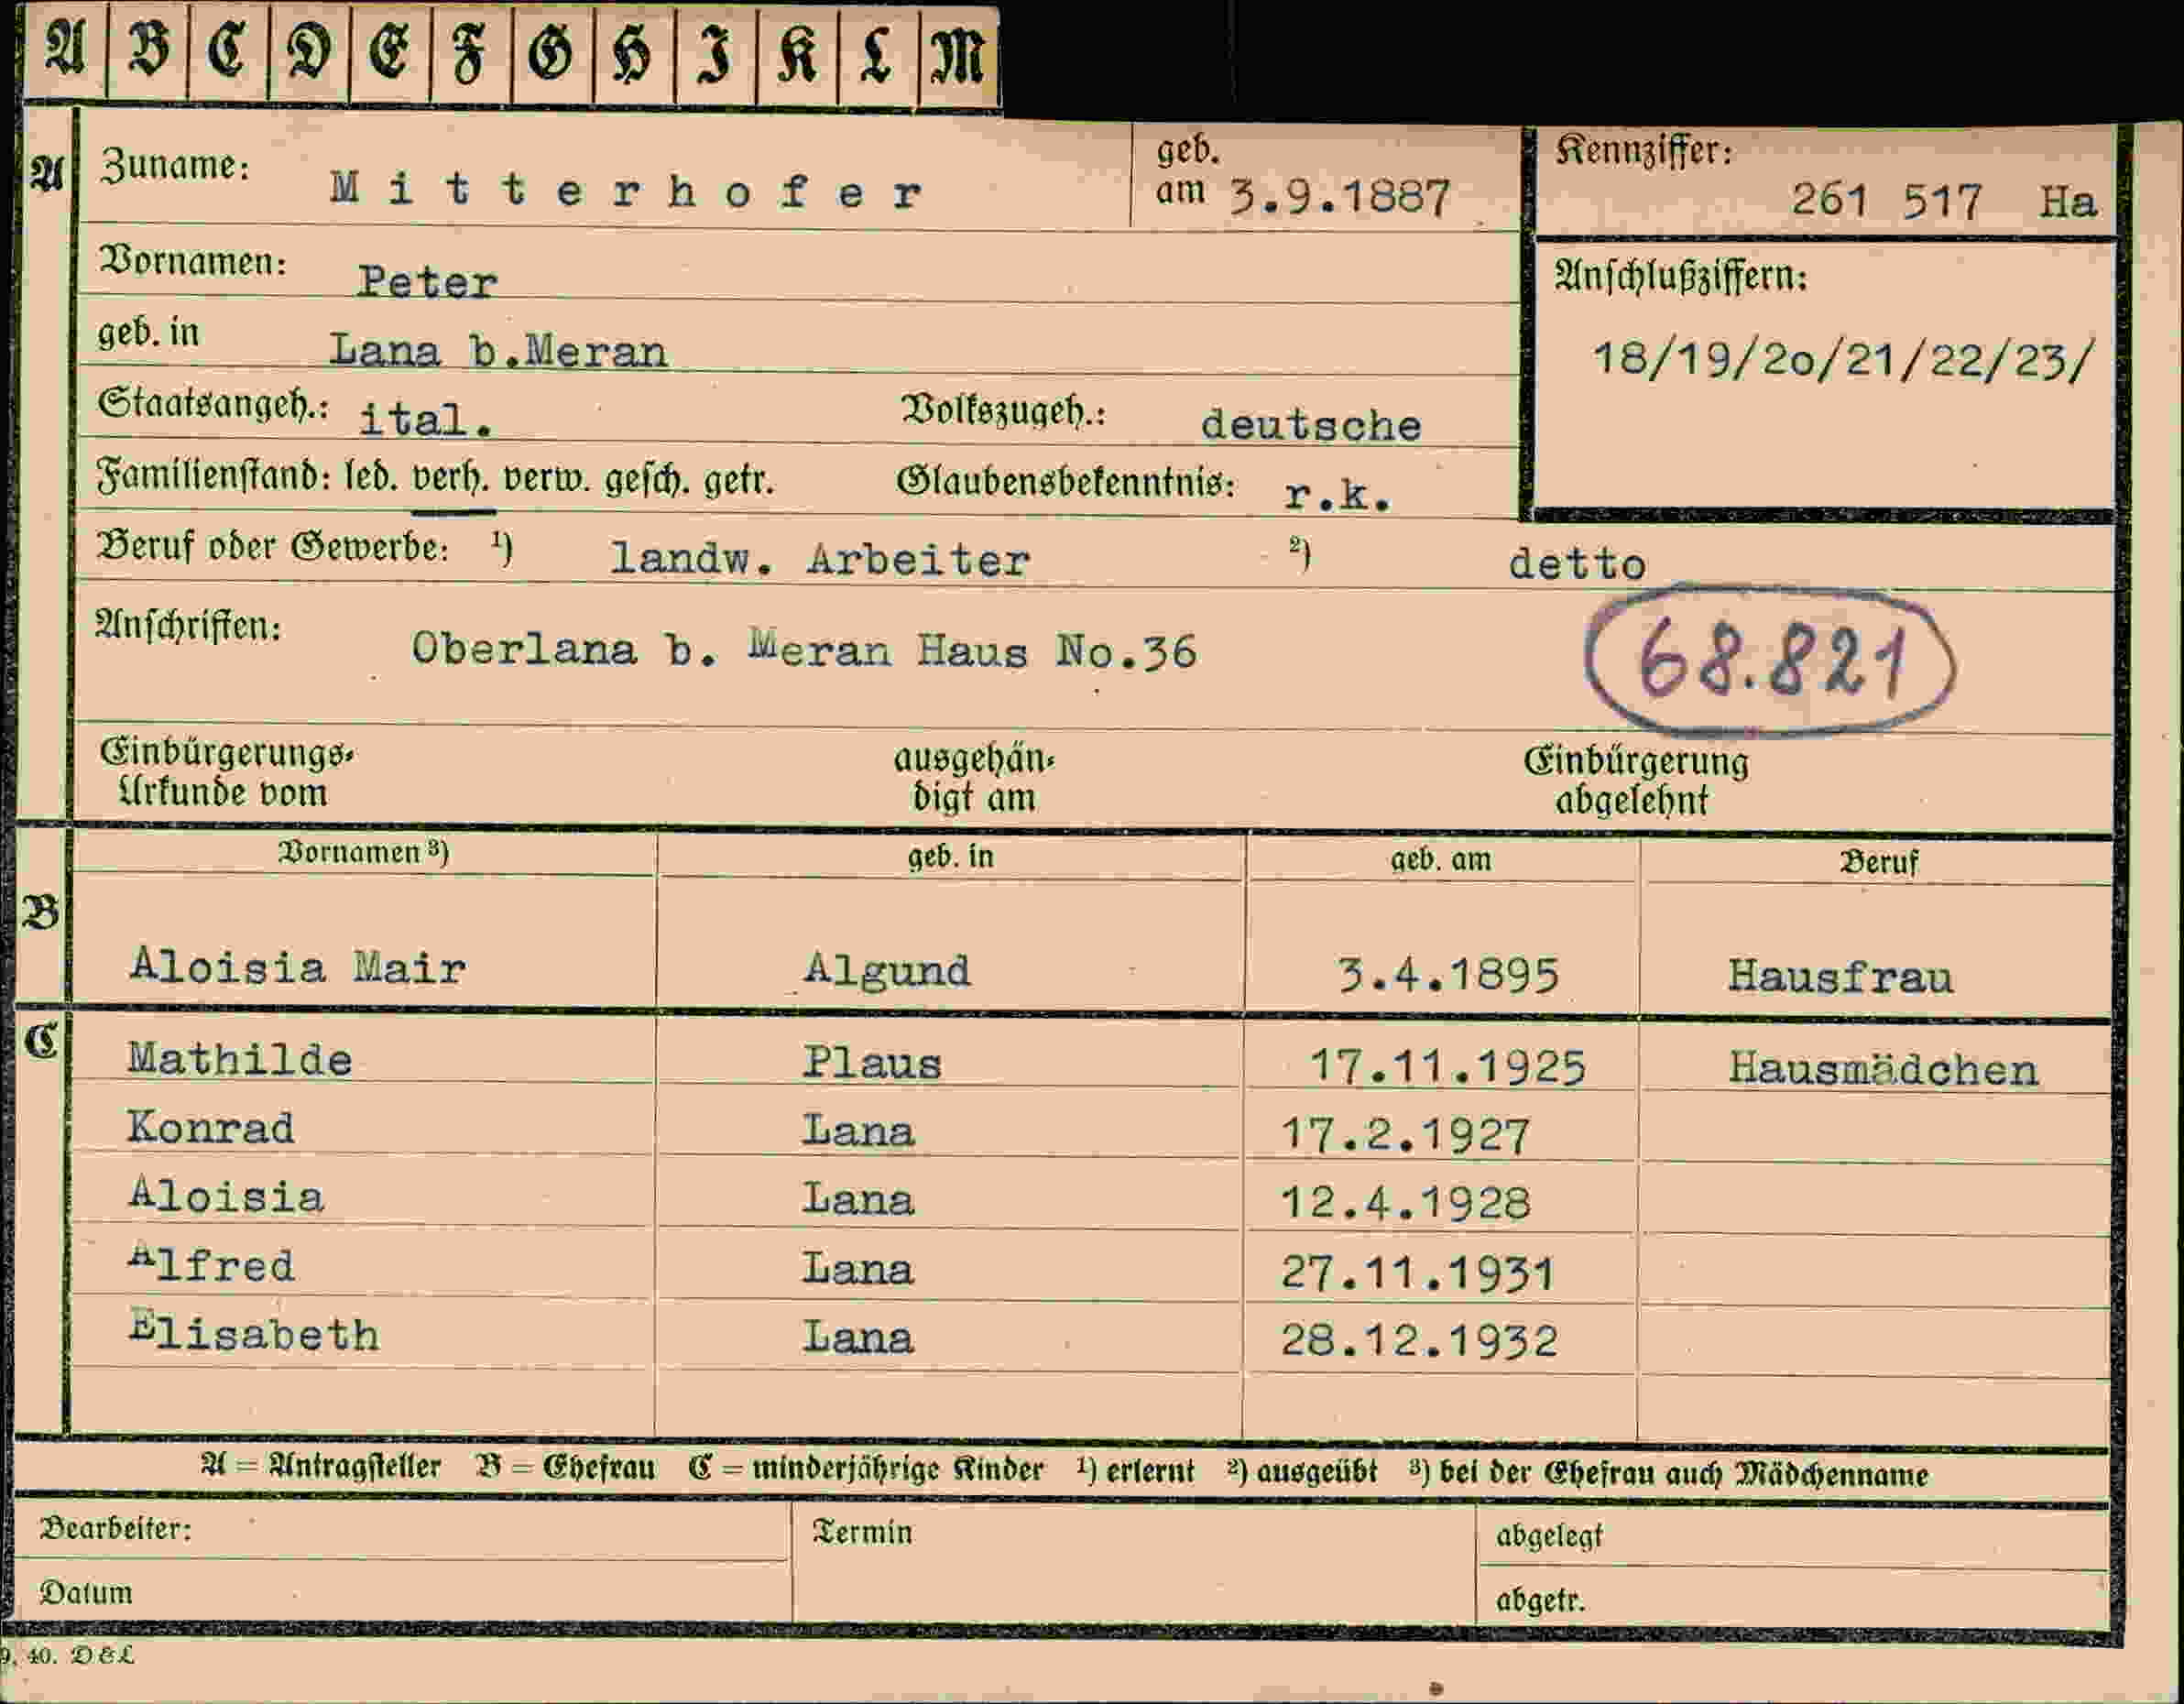 A B C D E F G H I K L M
A Zuname: Mitterhofer geb. am 3.9.1887 Kennziffer: 261 517 Ha
Vornamen: Peter
Anschlußziffern:
geb. in Lana b.Meran
18/19/2o/21/22/23/
Staatsangeh.: ital. Volkszugeh.: deutsche
Familienstand: led. verh. verw. gesch. getr. Glaubensbekenntnis: r.k.
Beruf oder Gewerbe: ¹) landw. Arbeiter ²) detto
Anschriften: Oberlana b. Meran Haus No.36
68.821
Einbürgerungs- ausgehän- Einbürgerung
Urkunde vom digt am abgelehnt
Vornamen ³) geb. in geb. am Beruf
B
Aloisia Mair Algund 3.4.1895 Hausfrau
C
Mathilde Plaus 17.11.1925 Hausmädchen
Konrad Lana 17.2.1927
Aloisia Lana 12.4.1928
Alfred Lana 27.11.1931
Elisabeth Lana 28.12.1932
A = Antragsteller B = Ehefrau C = minderjährige Kinder ¹) erlernt ²) ausgeübt ³) bei der Ehefrau auch Mädchenname
Bearbeiter: Termin abgelegt
Datum abgetr.
9. 40. D & L